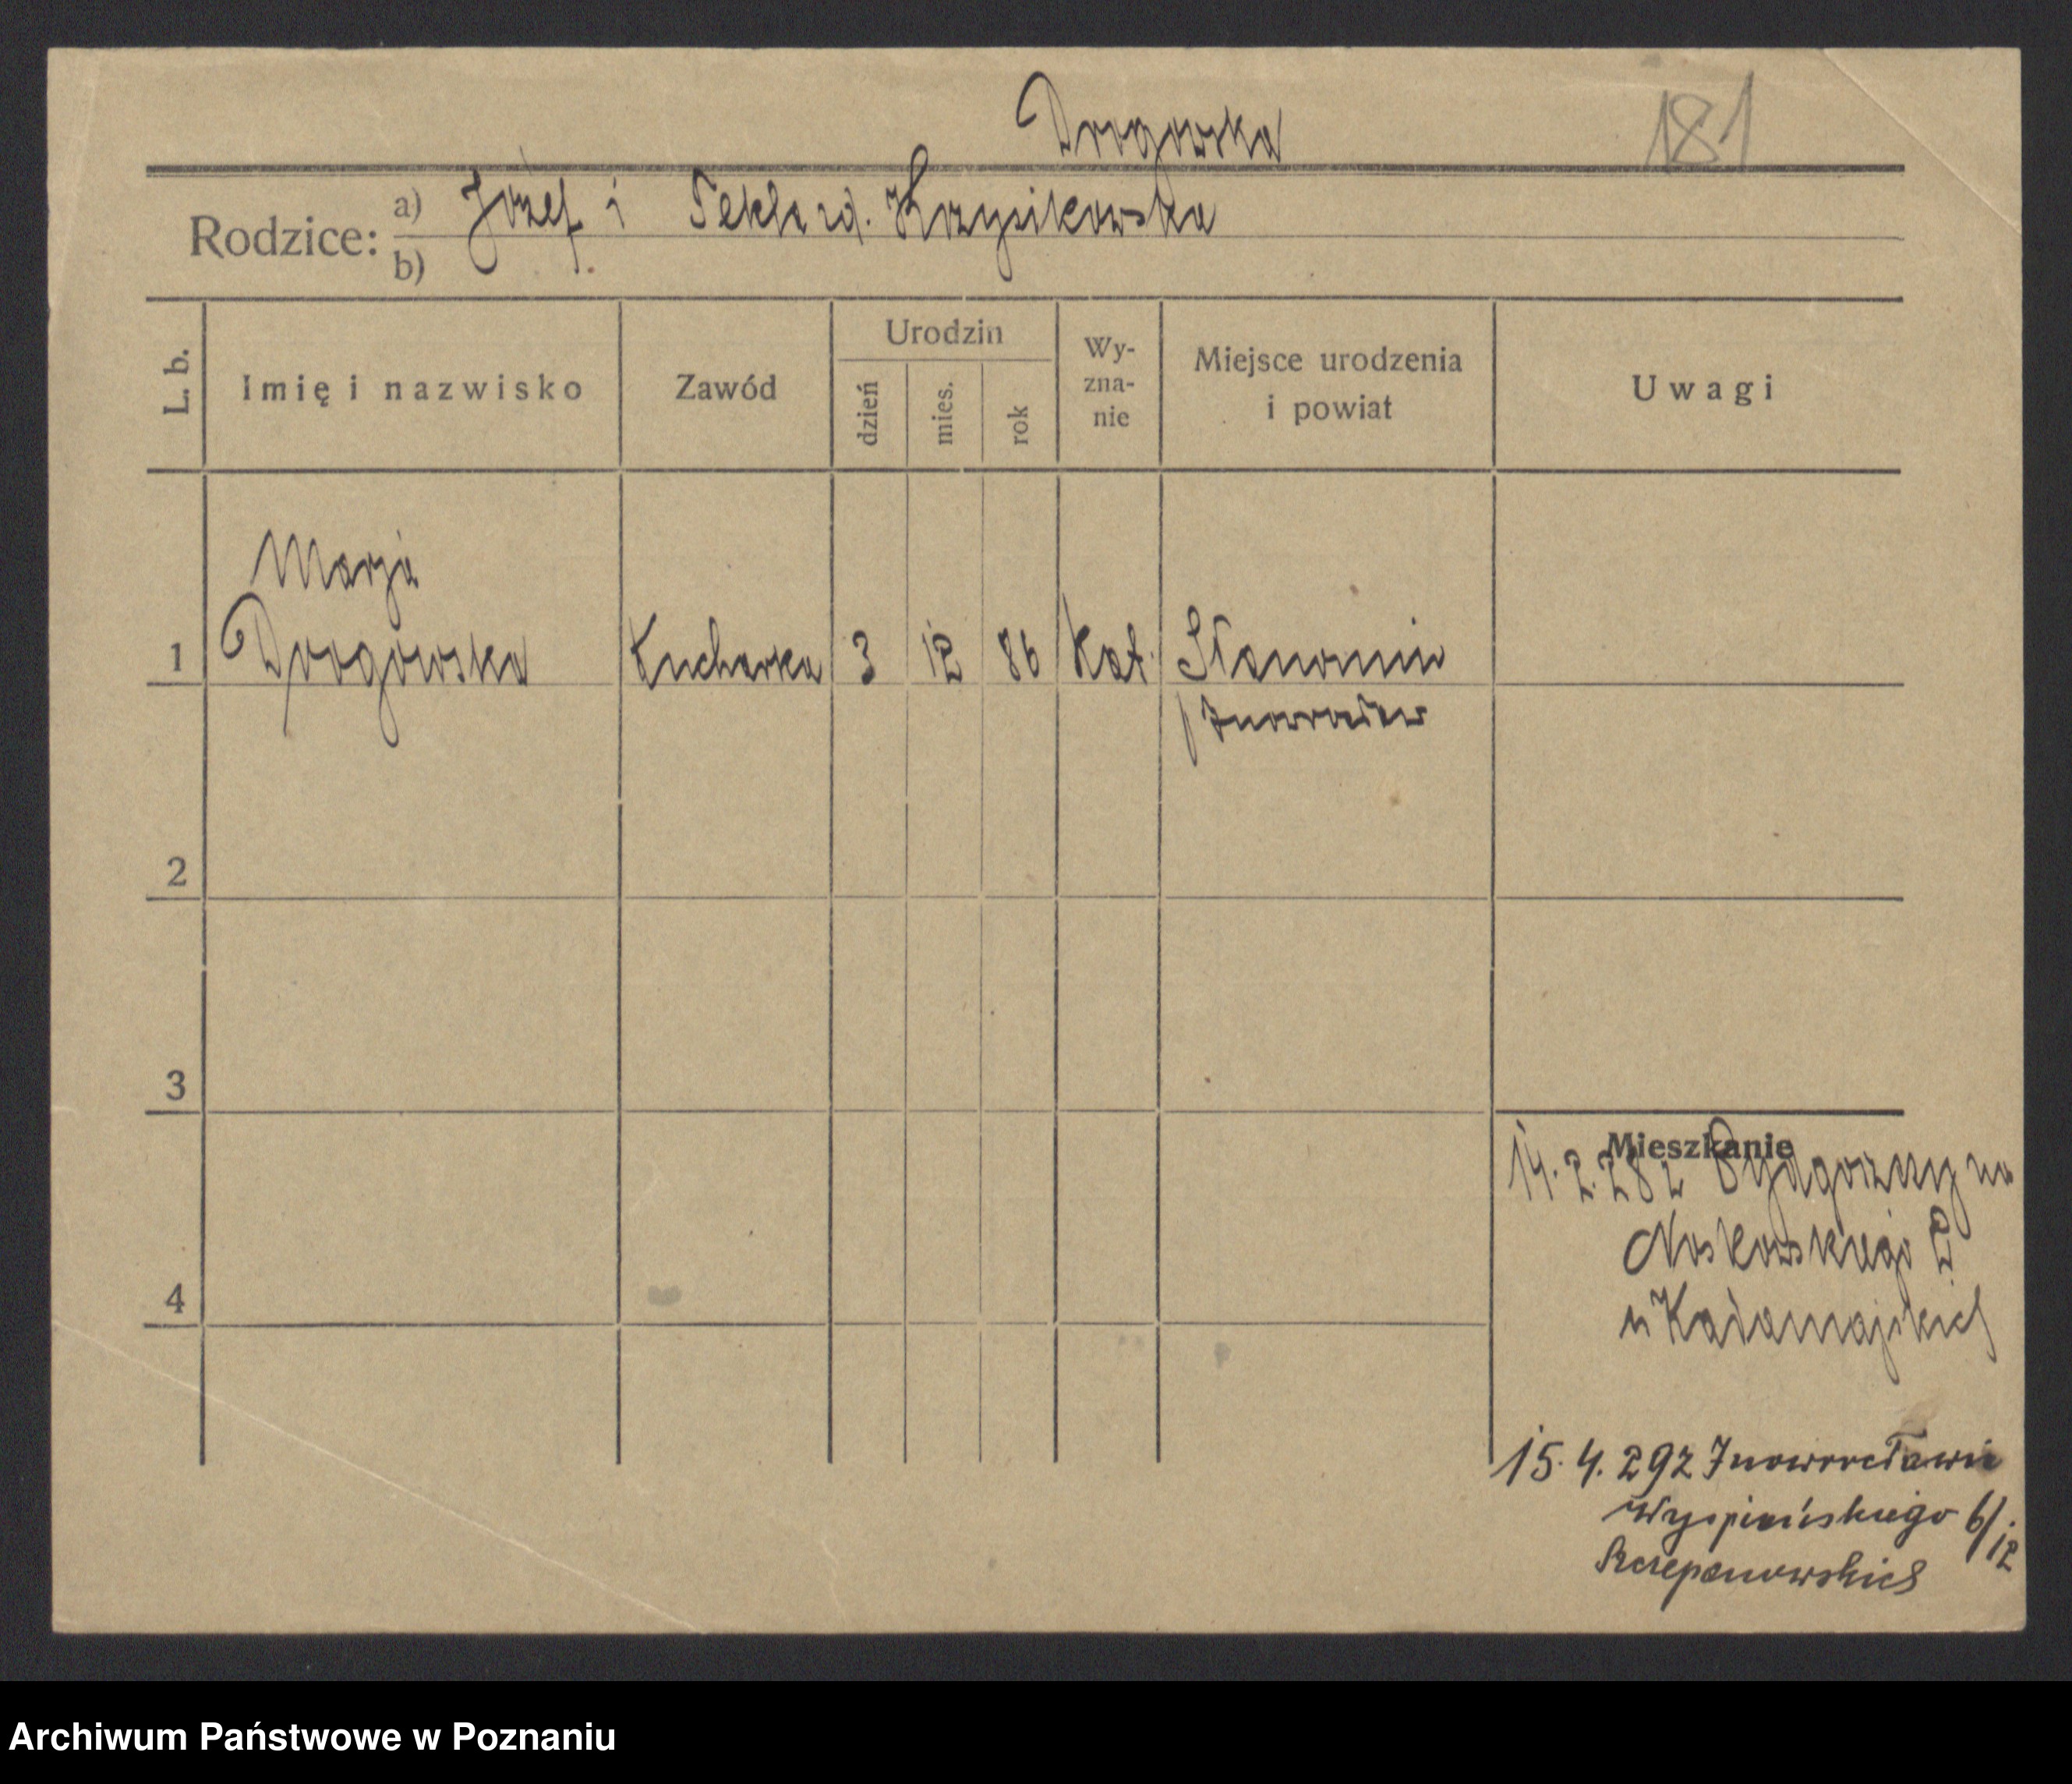 Drogowska
181
Rodzice: a) Józef i Tekla rd. Krzysikowska
b)
L. b. Imię i nazwisko Zawód Urodzin dzień mies. rok Wy-zna-nie Miejsce urodzenia i powiat Uwagi
Marja
1 Drogowska Kucharka 3 12 86 kat. Stanomin
/ Inowrocław
2
3
Mieszkanie
14. 2. 28 z Bydgoszczy na
Noskowskiego 2
u
4
15. 4. 29 z Inowrocławia
Wyspiańskiego 6/12
Szczepanowskich
Archiwum Państwowe w Poznaniu